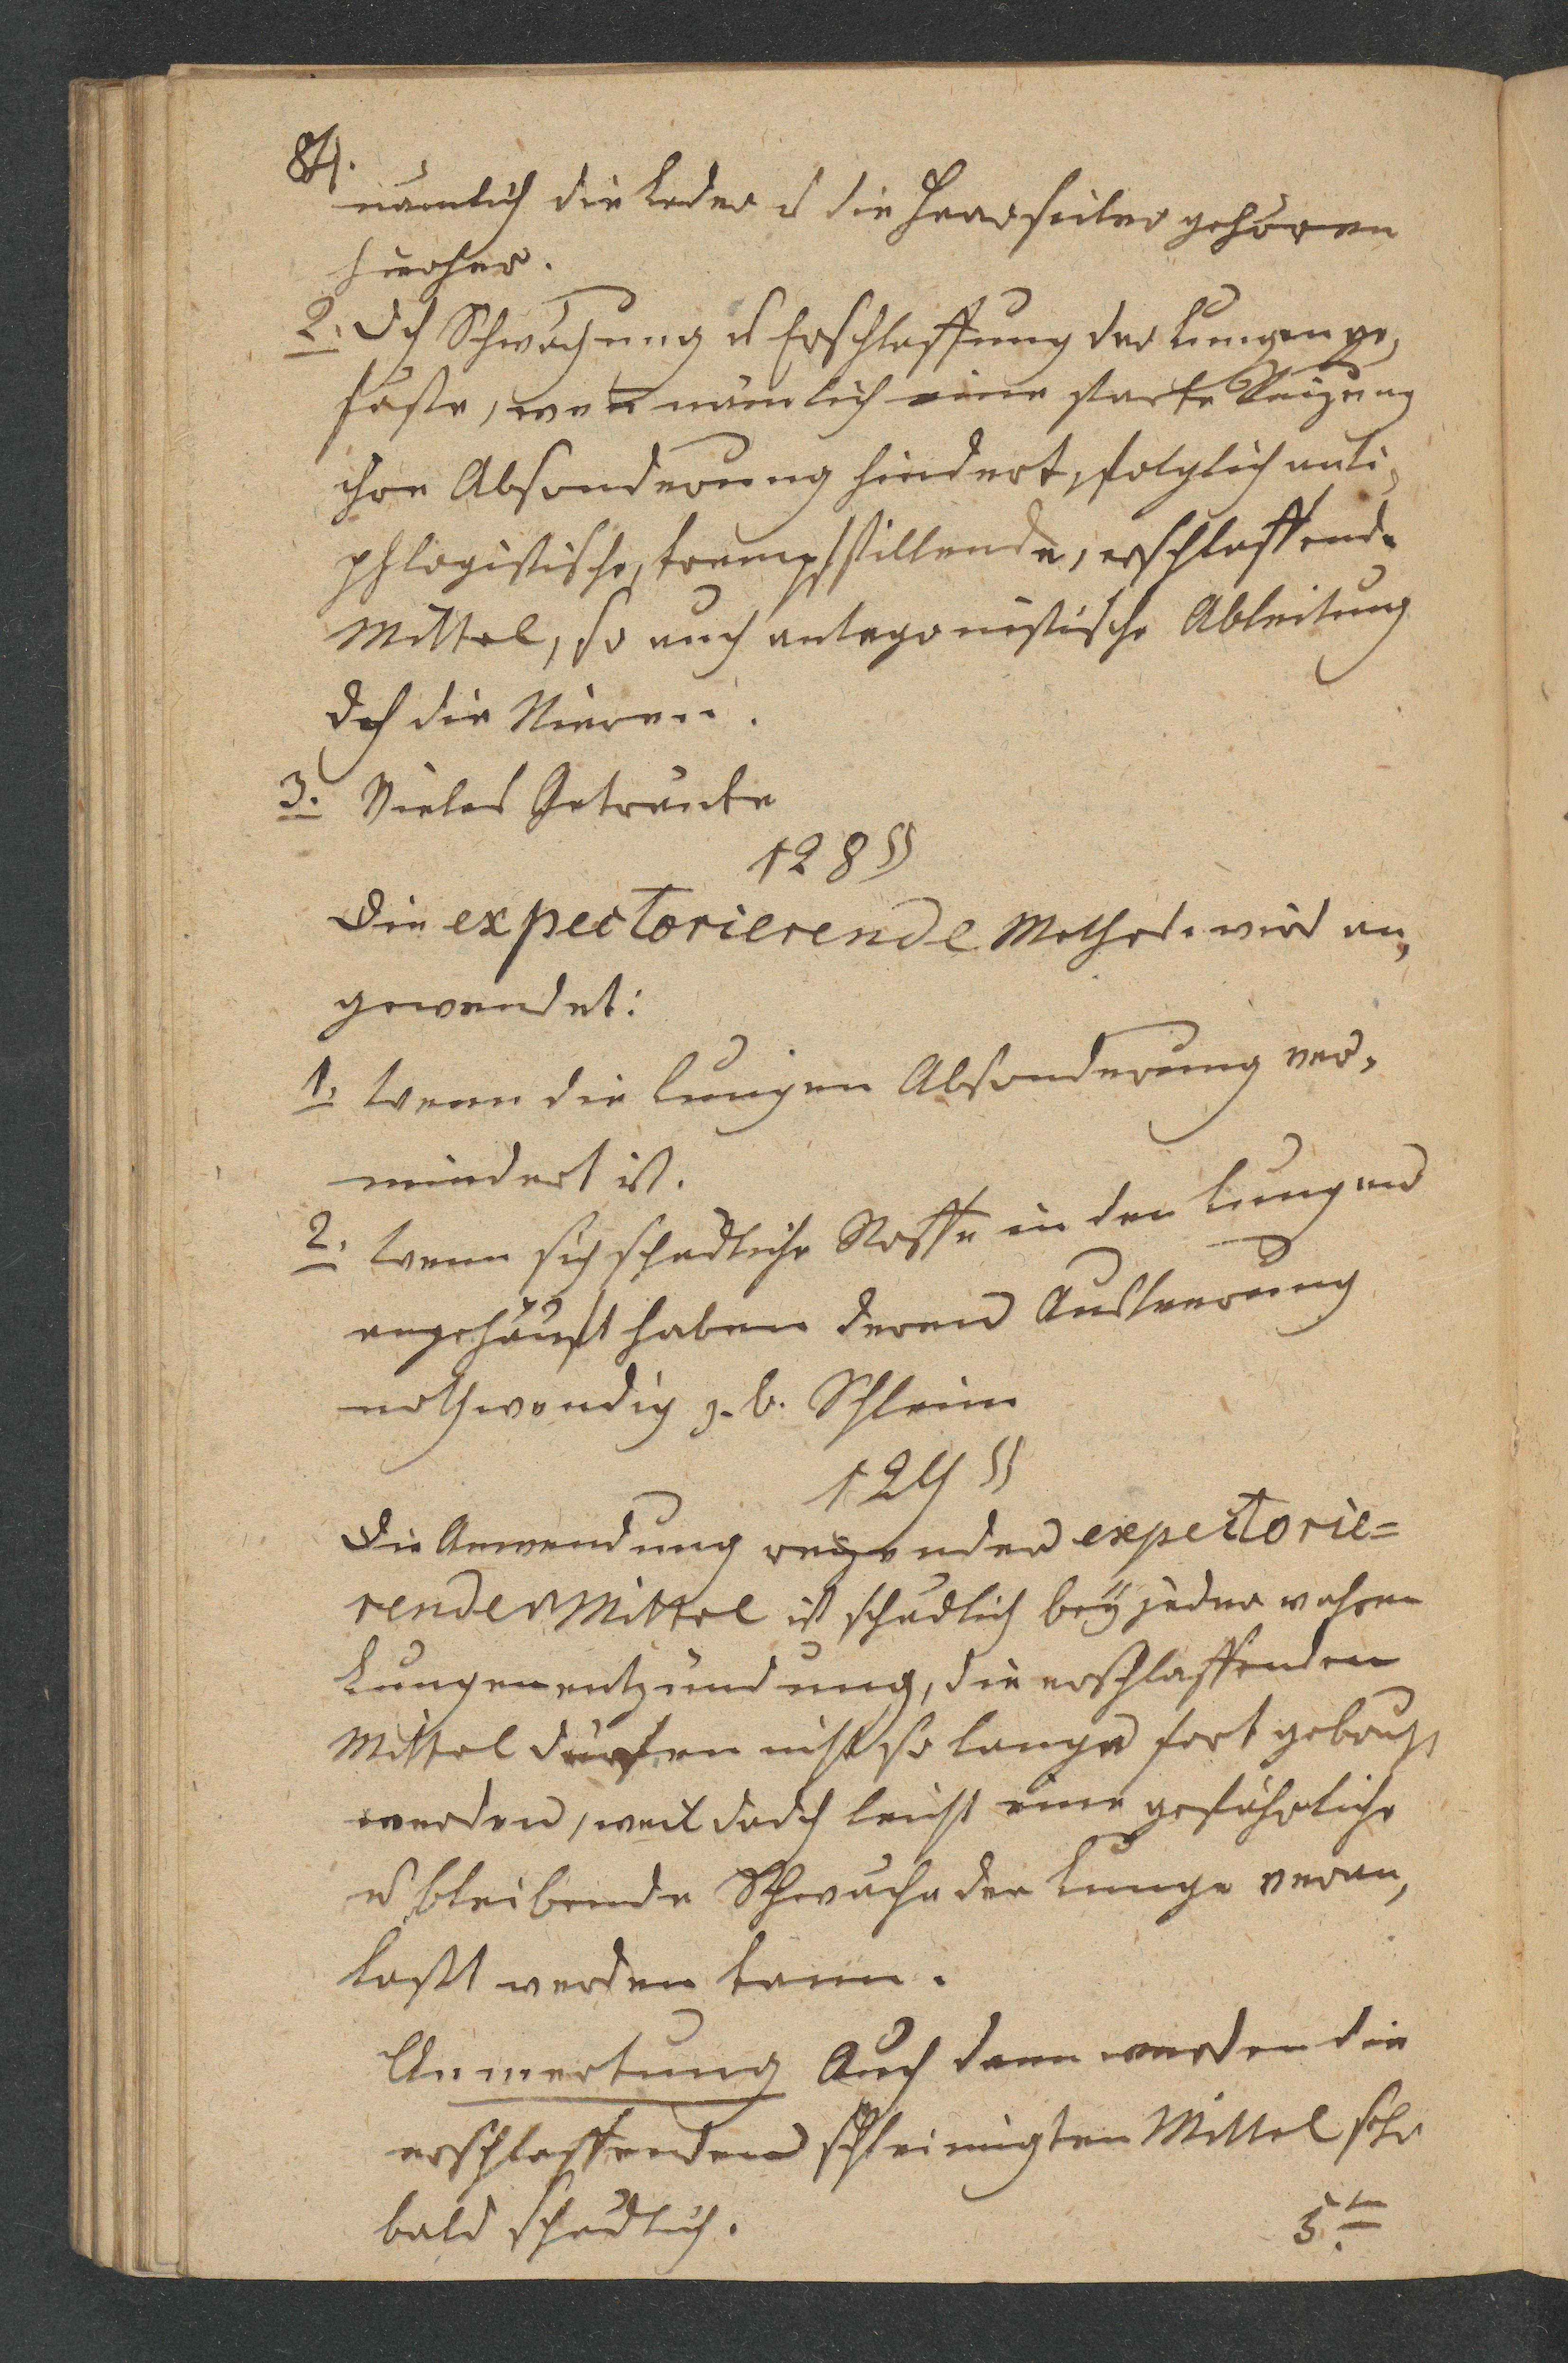 84.
nämlich die Leder u die Haarseiler gehören
hierher.
2. Dch Schwächung u Erschlaffung der Lungenge,
fäße, wenn nämlich eine starke Reizung
ihre Absonderung hindert, folglich anti,
phlogistische, krampfstillende, erschlaffende
Mittel, so auch antagonistische Ableitung
dch die Nieren.
3. Vieles Getränke
128 §
Die expectorierende Methode wird an,
gewendet:
1. Wenn die Lungen Absonderung ver,
mindert ist.
2. Wenn sich schädliche Stoffe in den Lungen
angehäuft haben deren Ausleerung
nothwendig z. b. Schleim
129 §
Die Anwendung reizender expectorie=
render Mittel ist schädlich beÿ jeder wahren
Lungenentzündung, die erschlaffenden
Mittel dürfen nicht so lange fort gebraucht
werden, weil dadch leicht eine gefährliche
u bleibende Schwäche der Lunge veran,
laßt werden kann.
Anmerkung Auch dann werden die
erschlaffenden schleimigten Mittel sehr
bald schädlich.
5.ten